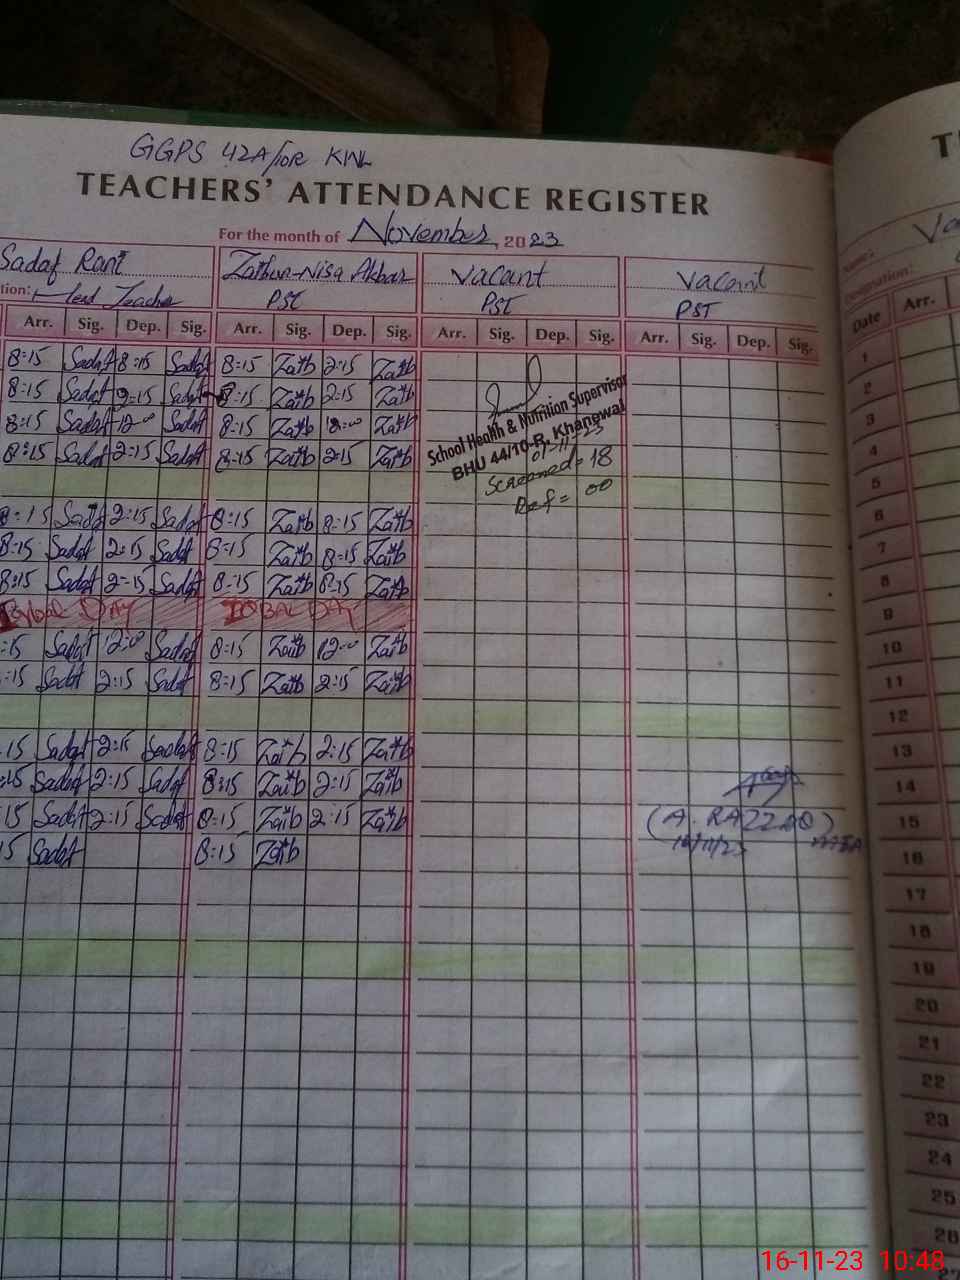 GGPS 42A/10R KWL
TEACHERS' ATTENDANCE REGISTER
For the month of November, 2023
Sadaf Rani Zaibun-Nisa Akbar Vacant Vacant
tion: Head Teacher PST PST PST
Arr. Sig. Dep. Sig. Arr. Sig. Dep. Sig. Arr. Sig. Dep. Sig. Arr. Sig. Dep. Sig.
Designation:
Date Arr.
8:15 Sadaf 8:15 Sadaf 8:15 Zaib 2:15 Zaib 1
8:15 Sadaf 2:15 Sadaf 8:15 Zaib 2:15 Zaib 2
8:15 Sadaf 12:00 Sadaf 8:15 Zaib 12:00 Zaib 3
8:15 Sadaf 2:15 Sadaf 8:15 Zaib 2:15 Zaib 4
School Health & Nutrition Supervisor
BHU 44/10-R, Khanewal
01-11-23
Screened = 18
Ref = 00
5
8:15 Sadaf 2:15 Sadaf 8:15 Zaib 8:15 Zaib 6
8:15 Sadaf 2:15 Sadaf 8:15 Zaib 8:15 Zaib 7
8:15 Sadaf 2:15 Sadaf 8:15 Zaib 8:15 Zaib 8
DAY DAY 9
:15 Sadaf 12:00 Sadaf 8:15 Zaib 12:00 Zaib 10
:15 Sadaf 2:15 Sadaf 8:15 Zaib 2:15 Zaib 11
12
15 Sadaf 2:15 Sadaf 8:15 Zaib 2:15 Zaib 13
:15 Sadaf 2:15 Sadaf 8:15 Zaib 2:15 Zaib 14
15 Sadaf 2:15 Sadaf 8:15 Zaib 2:15 Zaib (A. RAZZAQ) 15
15 Sadaf 8:15 Zaib 16/11/23 MEA 16
17
18
19
20
21
22
23
24
25
26
27
16-11-23 10:48